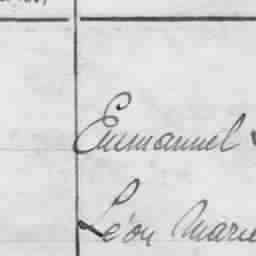 Emmanuel
Léon Marie